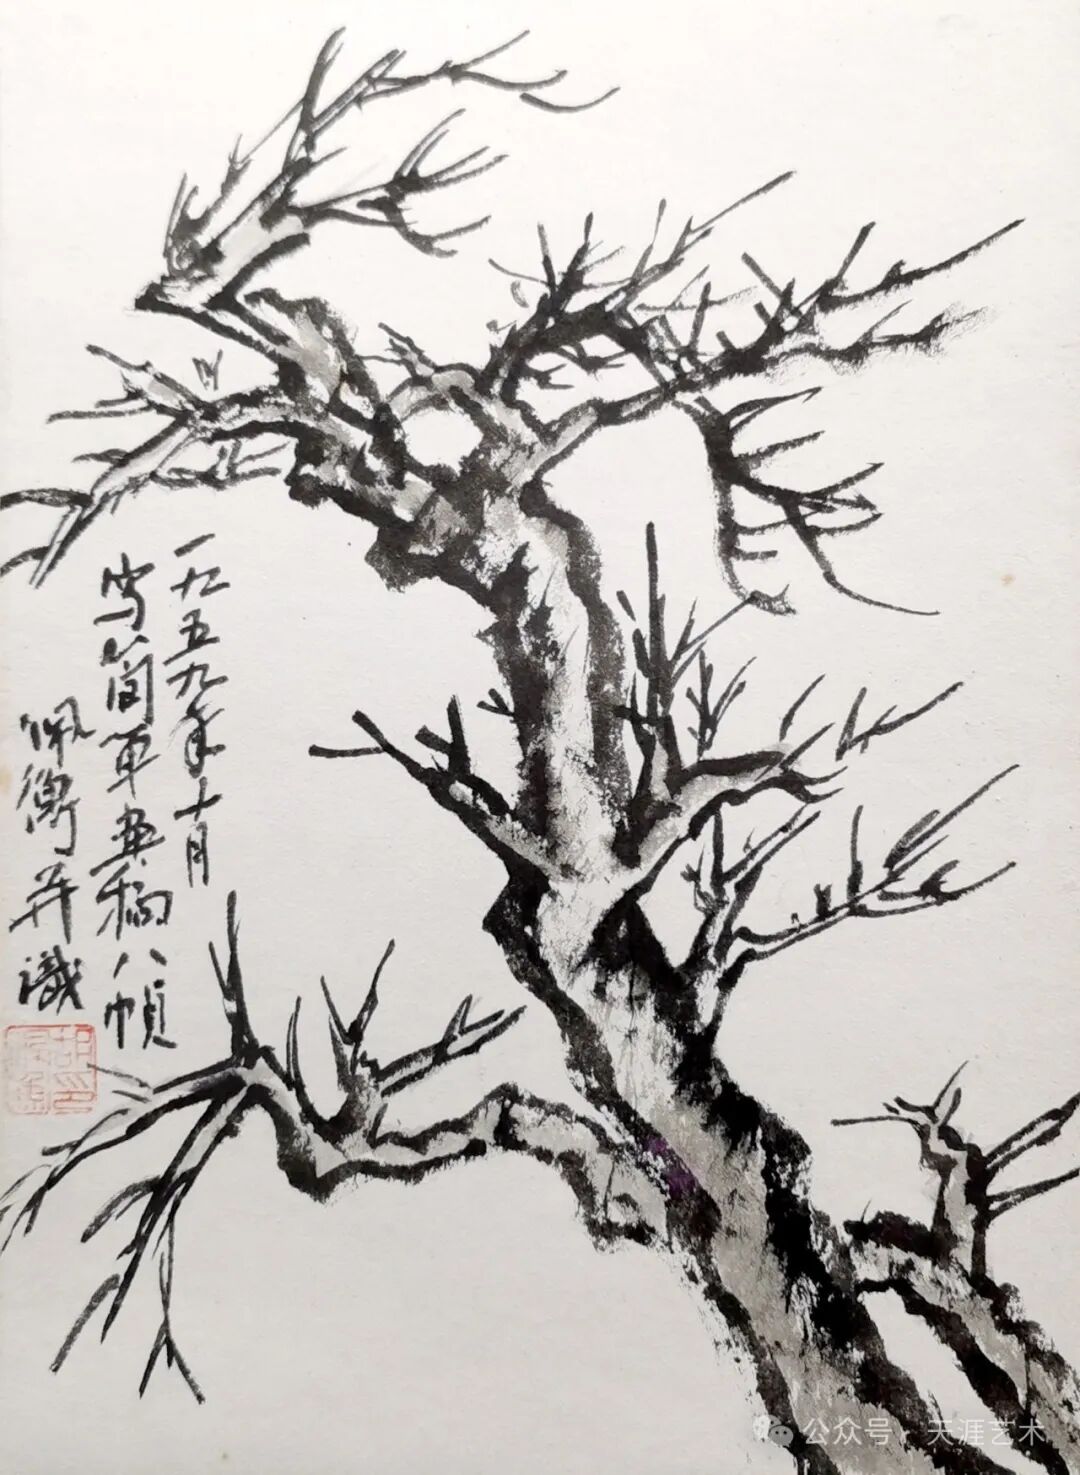 一九五九年十月
写简单画稿八帧
佩衡并识
公众号 · 天涯艺术